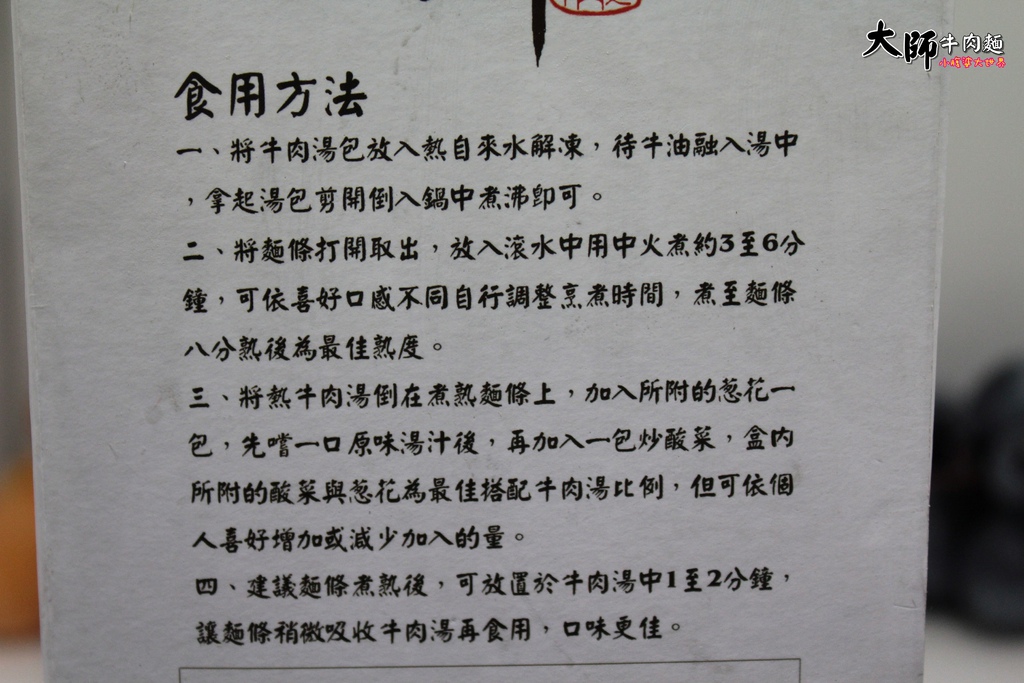 大師牛肉麵
小瘋婆大世界
食用方法
一、將牛肉湯包放入熱自來水解凍，待牛油融入湯中
，拿起湯包剪開倒入鍋中煮沸即可。
二、將麵條打開取出，放入滾水中用中火煮約3至6分
鐘，可依喜好口感不同自行調整烹煮時間，煮至麵條
八分熟後為最佳熟度。
三、將熱牛肉湯倒在煮熟麵條上，加入所附的蔥花一
包，先嚐一口原味湯汁後，再加入一包炒酸菜，盒內
所附的酸菜與蔥花為最佳搭配牛肉湯比例，但可依個
人喜好增加或減少加入的量。
四、建議麵條煮熟後，可放置於牛肉湯中1至2分鐘，
讓麵條稍微吸收牛肉湯再食用，口味更佳。